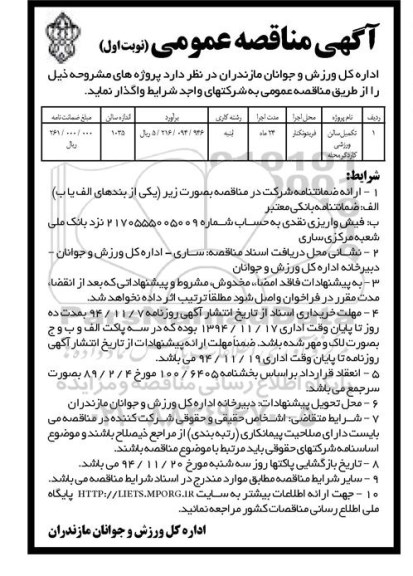 آگهی مناقصه عمومی (نوبت اول)
اداره کل ورزش و جوانان مازندران در نظر دارد پروژه های مشروحه ذیل
را از طریق مناقصه عمومی به شرکتهای واجد شرایط واگذار نماید.
ردیف نام پروژه محل اجرا مدت اجرا رشته کاری برآورد اندازه سالن مبلغ ضمانت نامه
۱ تکمیل سالن ورزشی کاردگر محله فریدونکنار ۲۴ ماه ابنیه ۵/۲۱۶/۰۹۴/۹۴۶ ریال ۱۰۳۵ ۲۶۱/۰۰۰/۰۰۰ ریال
شرایط:
۱ - ارائه ضمانتنامه شرکت در مناقصه بصورت زیر (یکی از بندهای الف یا ب)
الف: ضمانتنامه بانکی معتبر
ب: فیش واریزی نقدی به حساب شماره ۲۱۷۰۵۵۵۰۰۵۰۰۹ نزد بانک ملی
شعبه مرکزی ساری
۲ - نشانی محل دریافت اسناد مناقصه: ساری - اداره کل ورزش و جوانان -
دبیرخانه اداره کل ورزش و جوانان
۳ - به پیشنهادات فاقد امضاء، مخدوش، مشروط و پیشنهاداتی که بعد از انقضاء
مدت مقرر در فراخوان واصل شود مطلقاً ترتیب اثر داده نخواهد شد.
۴ - مهلت خریداری اسناد از تاریخ انتشار آگهی روزنامه ۹۴/۱۱/۷ بمدت ده
روز تا پایان وقت اداری ۱۳۹۴/۱۱/۱۷ بوده که در سه پاکت الف و ب و ج
بصورت لاک و مهر شده باشد. ضمناً مهلت ارائه پیشنهادات از تاریخ انتشار آگهی
روزنامه تا پایان وقت اداری ۹۴/۱۱/۱۹ می باشد.
۵ - انعقاد قرارداد براساس بخشنامه ۱۰۰/۶۴۰۵ مورخ ۸۹/۲/۴ بصورت
سرجمع می باشد.
۶ - محل تحویل پیشنهادات: دبیرخانه اداره کل ورزش و جوانان مازندران
۷ - شرایط متقاضی: اشخاص حقیقی و حقوقی شرکت کننده در مناقصه می
بایست دارای صلاحیت پیمانکاری (رتبه بندی) از مراجع ذیصلاح باشند و موضوع
اساسنامه شرکتهای حقوقی باید مرتبط با موضوع مناقصه باشند.
۸ - تاریخ بازگشایی پاکتها روز سه شنبه مورخ ۹۴/۱۱/۲۰ می باشد.
۹ - سایر شرایط مناقصه مطابق موارد مندرج در اسناد شرایط مناقصه می باشد.
۱۰ - جهت ارائه اطلاعات بیشتر به سایت HTTP://IETS.MPORG.IR پایگاه
ملی اطلاع رسانی مناقصات کشور مراجعه نمائید.
اداره کل ورزش و جوانان مازندران